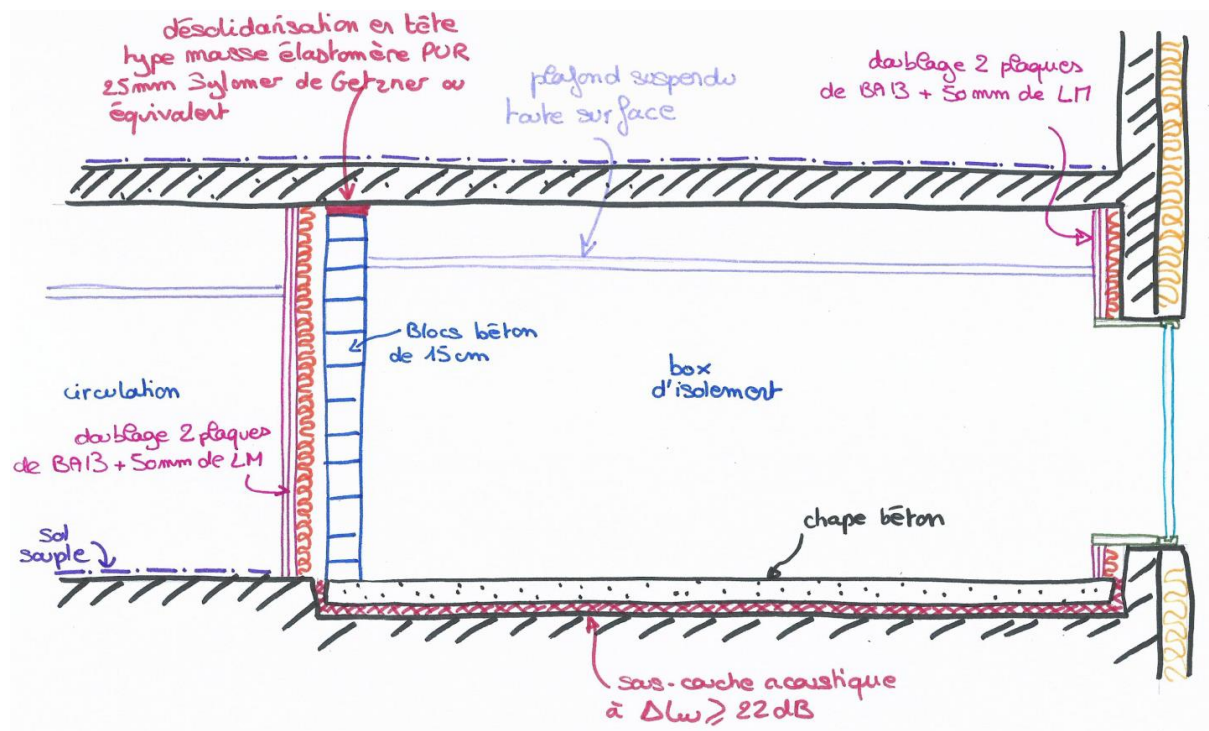 désolidarisation en tête
type masse élastomère PUR
25mm Sylomer de Getzner ou
équivalent
plafond suspendu
toute surface
doublage 2 plaques
de BA13 + 50mm de LM
Blocs béton
de 15cm
box
d'isolement
circulation
doublage 2 plaques
de BA13 + 50mm de LM
sol
souple
chape béton
sous-couche acoustique
à ΔLw ≥ 22dB